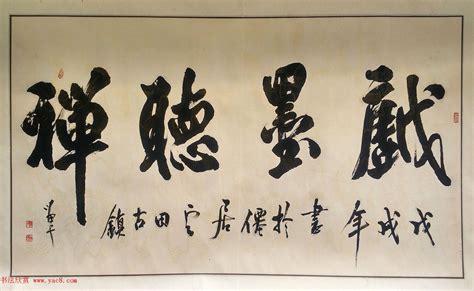 戲墨聽禪
戊戌年書於僊居云田古鎮
书法欣赏 www.yac8.com